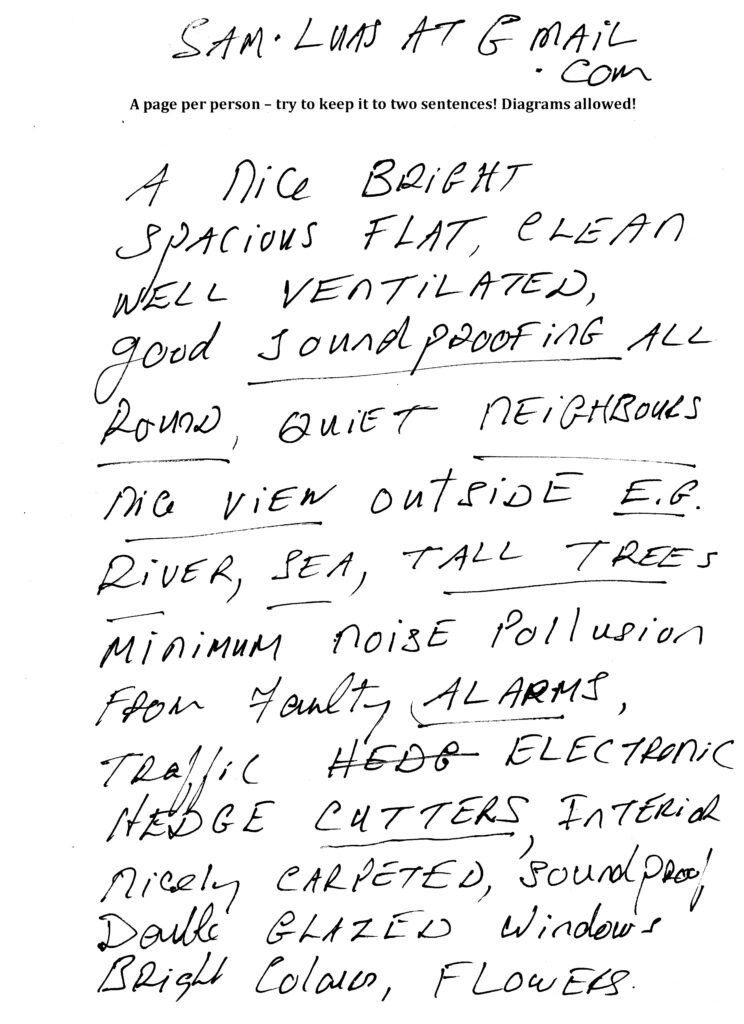 SAM. LUAS AT GMAIL
.com
A page per person – try to keep it to two sentences! Diagrams allowed!
A nice BRiGHT
SPACious FLAT, CLEAn
WELL VEnTiLATED,
good soundproofinG ALL
Round, QuiET nEiGHBouRs
nice viEW outsiDE E.G.
RiVER, SEA, TALL TREEs
MiniMuM noisE Pollusion
FRom Faulty ALARMS,
TRaffic HEDG ELECTRoniC
HEDGE CUTTERS, InTERioR
nicely CARPETED, soundProof,
Double GLAZED Windows
BRight Colours, FLOWERS.